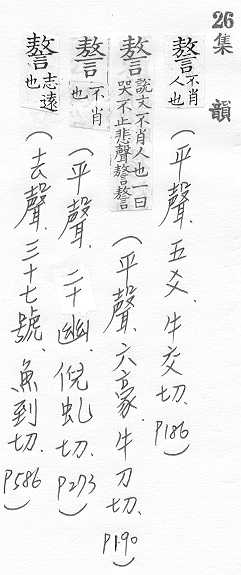 26
集韻
謷不肖人也(平聲.五爻.牛交切.P186)
謷說文不肖人也一曰哭不止悲聲謷謷(平聲.六豪.牛刀切.P190)
謷不肖也(平聲.二十幽.倪虬切.P273)
謷志遠也(去聲.三十七號.魚到切.P586)